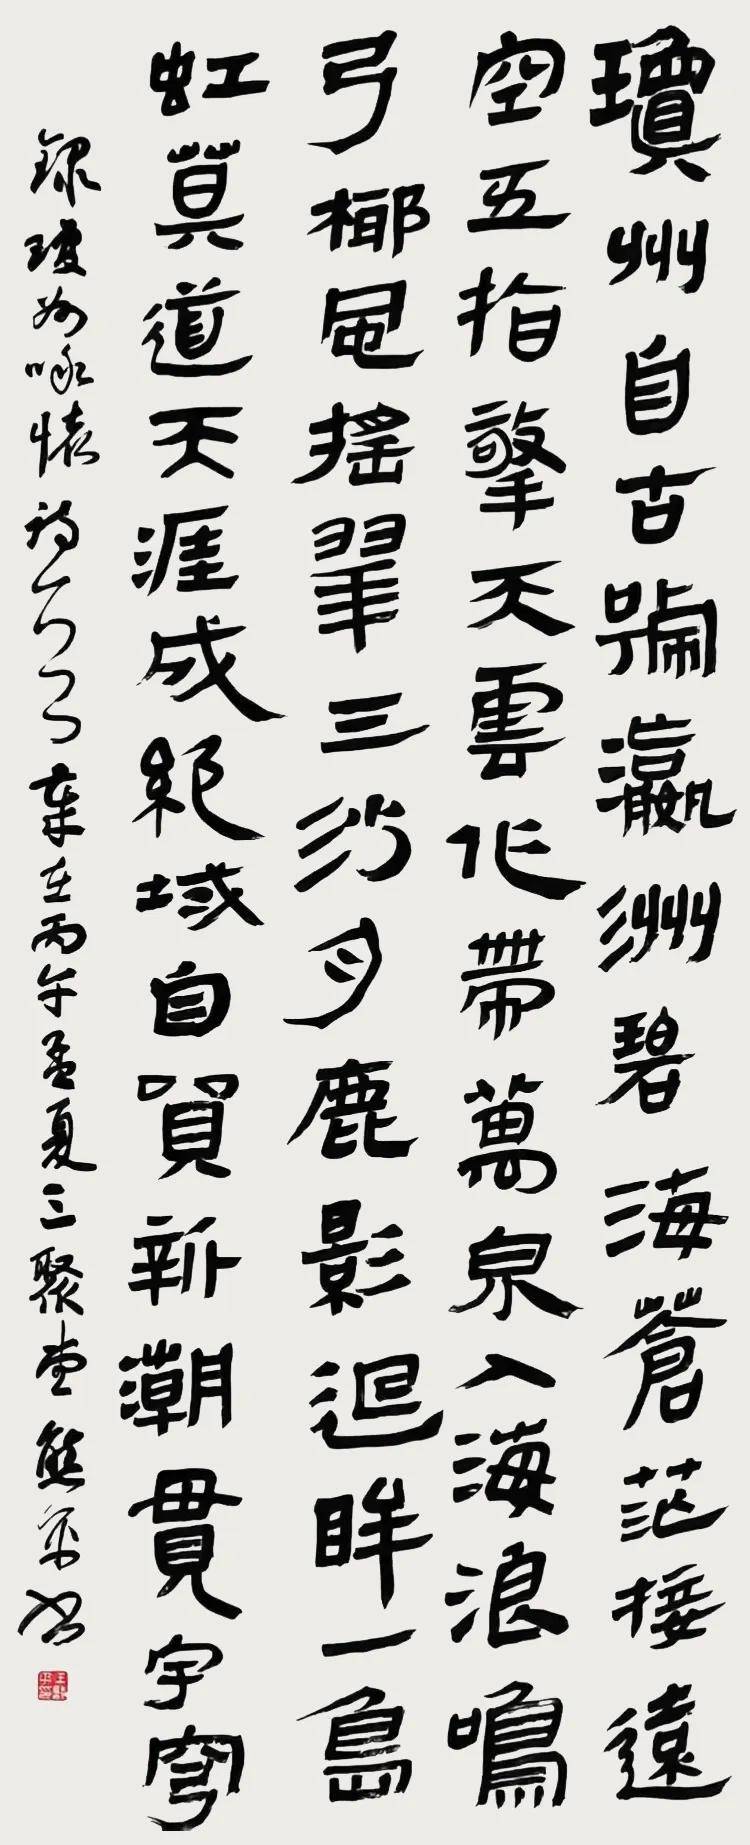 瓊州自古號瀛洲碧海蒼茫接遠
空五指擎天雲化帶萬泉入海浪鳴
弓椰風搖翠三沙月鹿影迴眸一島
虹莫道天涯成絕域自貿新潮貫宇穹
錄瓊州詠懷詩歲在丙午孟夏三聚堂熊平書